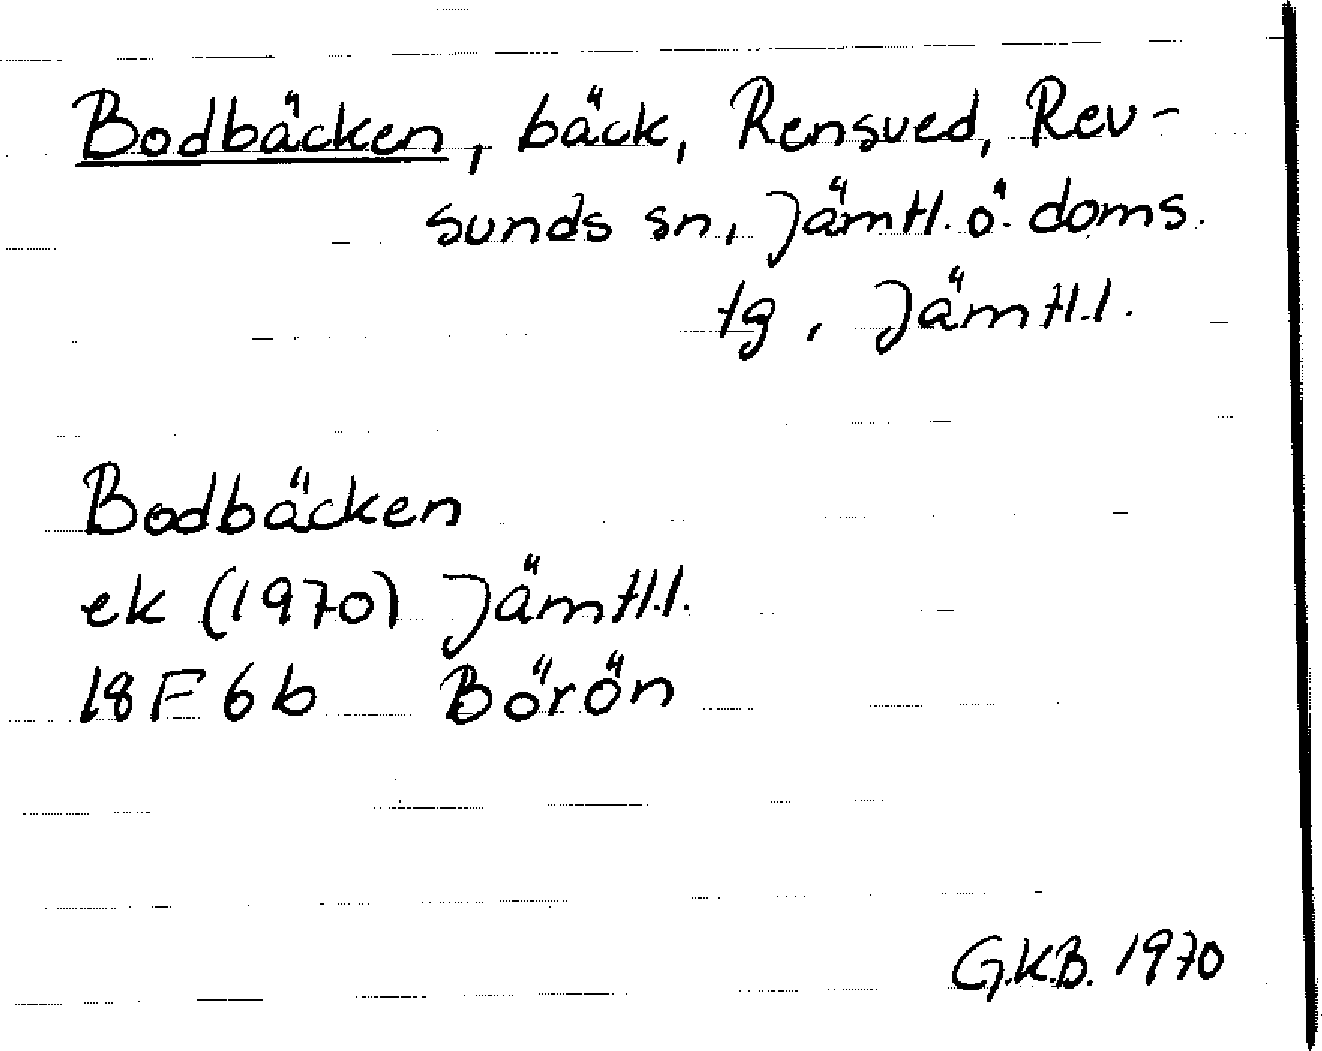 Bodbäcken, bäck, Rensved, Rev-
sunds sn, Jämtl. ö. doms.
tg, Jämtl.l.
Bodbäcken
ek (1970) Jämtl.l.
18F 6b Börön
G.K.B. 1970